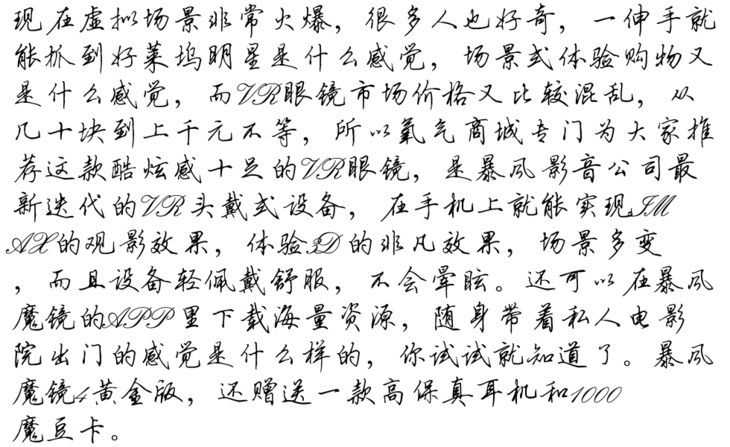 现在虚拟场景非常火爆，很多人也好奇，一伸手就
能抓到好莱坞明星是什么感觉，场景式体验购物又
是什么感觉，而VR眼镜市场价格又比较混乱，从
几十块到上千元不等，所以氧气商城专门为大家推
荐这款酷炫感十足的VR眼镜，是暴风影音公司最
新迭代的VR头戴式设备，在手机上就能实现IM
AX的观影效果，体验3D的非凡效果，场景多变
，而且设备轻佩戴舒服，不会晕眩。还可以在暴风
魔镜的APP里下载海量资源，随身带着私人电影
院出门的感觉是什么样的，你试试就知道了。暴风
魔镜4黄金版，还赠送一款高保真耳机和1000
魔豆卡。